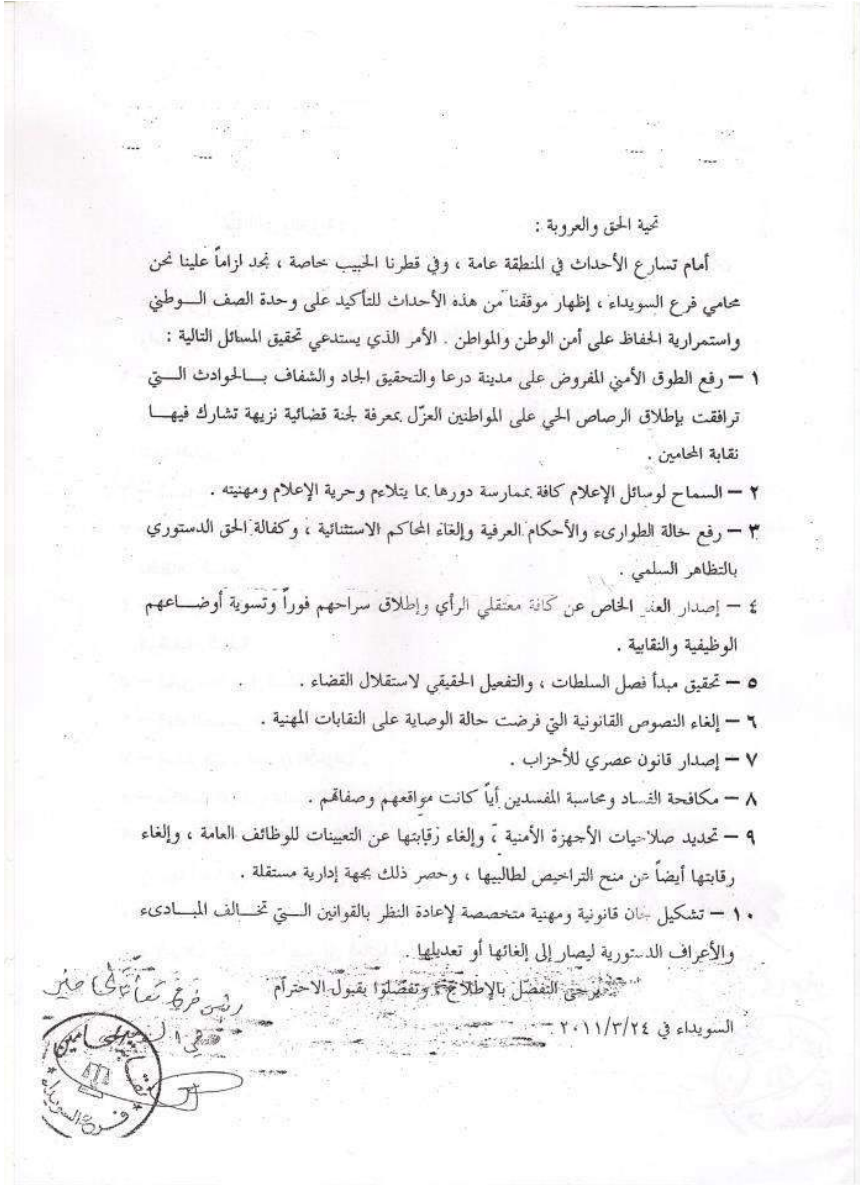 تحية الحق والعروبة :
أمام تسارع الأحداث في المنطقة عامة ، وفي قطرنا الحبيب خاصة ، نجد لزاماً علينا نحن
محامي فرع السويداء ، إظهار موقفنا من هذه الأحداث للتأكيد على وحدة الصف الـوطني
واستمرارية الحفاظ على أمن الوطن والمواطن . الأمر الذي يستدعي تحقيق المسائل التالية :
١ – رفع الطوق الأمني المفروض على مدينة درعا والتحقيق الجاد والشفاف بـالحوادث الـتي
ترافقت بإطلاق الرصاص الحي على المواطنين العزّل بمعرفة لجنة قضائية نزيهة تشارك فيهـا
نقابة المحامين .
٢ – السماح لوسائل الإعلام كافة بممارسة دورها بما يتلاءم وحرية الإعلام ومهنيته .
٣ – رفع حالة الطوارىء والأحكام العرفية وإلغاء المحاكم الاستثنائية ، وكفالة الحق الدستوري
بالتظاهر السلمي .
٤ – إصدار العفو الخاص عن كافة معتقلي الرأي وإطلاق سراحهم فوراً وتسوية أوضـاعهم
الوظيفية والنقابية .
٥ – تحقيق مبدأ فصل السلطات ، والتفعيل الحقيقي لاستقلال القضاء .
٦ – إلغاء النصوص القانونية التي فرضت حالة الوصاية على النقابات المهنية .
٧ – إصدار قانون عصري للأحزاب .
٨ – مكافحة الفساد ومحاسبة المفسدين أياً كانت مواقعهم وصفاتهم .
٩ – تحديد صلاحيات الأجهزة الأمنية ، وإلغاء رقابتها عن التعيينات للوظائف العامة ، وإلغاء
رقابتها أيضاً عن منح التراخيص لطالبيها ، وحصر ذلك بجهة إدارية مستقلة .
١٠ – تشكيل لجان قانونية ومهنية متخصصة لإعادة النظر بالقوانين الـتي تخـالف المبـادىء
والأعراف الدستورية ليصار إلى إلغائها أو تعديلها .
يرجى التفضل بالإطلاع وتفضلوا بقبول الاحترام
السويداء في ٢٠١١/٣/٢٤
رئيس فرع نقابة المحامين
نقابة المحامين
فرع السويداء